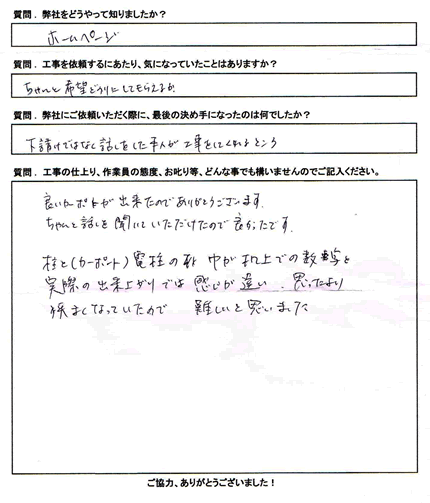 質問．弊社をどうやって知りましたか？
ホームページ
質問．工事を依頼するにあたり、気になっていたことはありますか？
ちゃんと希望どうりにしてもらえるか
質問．弊社にご依頼いただく際に、最後の決め手になったのは何でしたか？
下請けではなく話しをした本人が工事をしてくれるところ
質問．工事の仕上り、作業員の態度、お叱り等、どんな事でも構いませんのでご記入ください。
良いカーポートが出来たのでありがとうございます.
ちゃんと話しを聞いていただけたので良かったです.
柱と(カーポート)電柱の 巾が机上での数字と
実際の出来上がりでは感じが違い. 思ったより
狭まくなっていたので 難しいと思いました
ご協力、ありがとうございました！